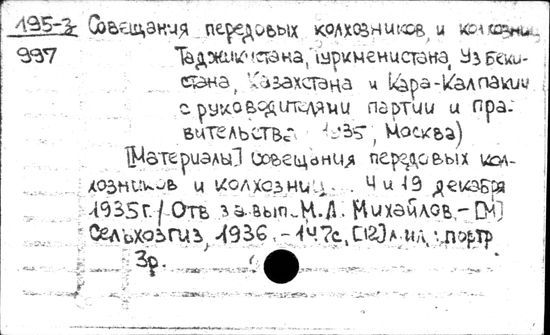 195-3 Совещания передовых колхозников и колхозниц
997 Таджикистана, Туркменистана, Узбеки-
стана, Казахстана и Кара-Калпакии
с руководителями партии и пра-
вительства 1935, Москва)
[Материалы] совещания передовых кол-
хозников и колхозниц .. 4 и 19 декабря
1935 г. / Отв за вып. М. Л. Михайлов. - [М]
Сельхозгиз, 1936. - 147с, [12] л. ил., портр
3р.